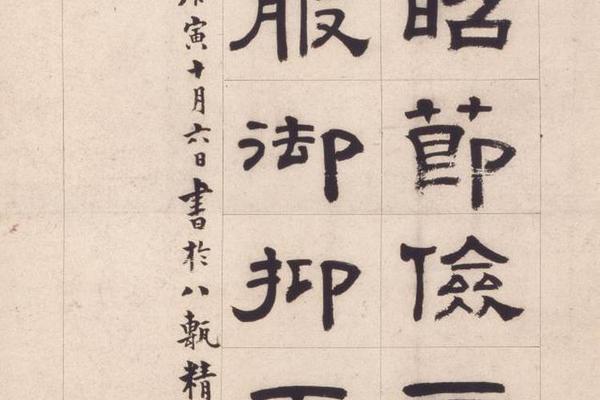 昭節儉
服御抑
寅十月六日書於八甎精